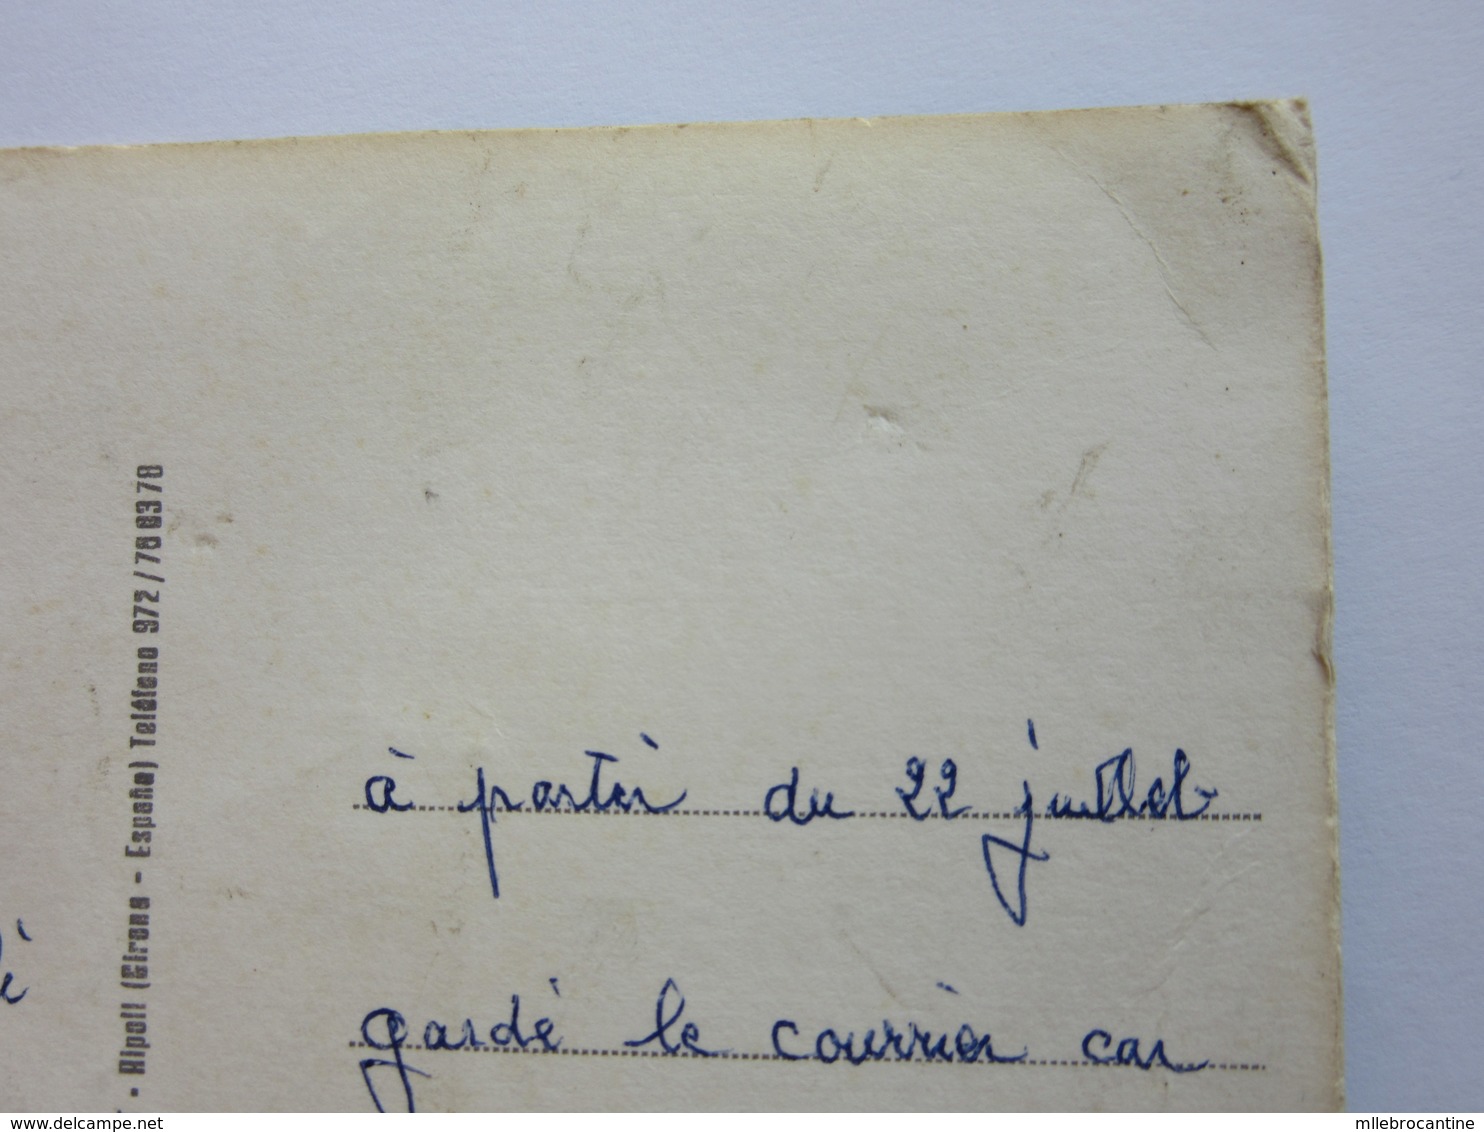 - Ripoll (Girona - España) Teléfono 972/70 03 78
à partir du 22 juillet
gardé le courrier car
mllebrocantine
delcampe.net